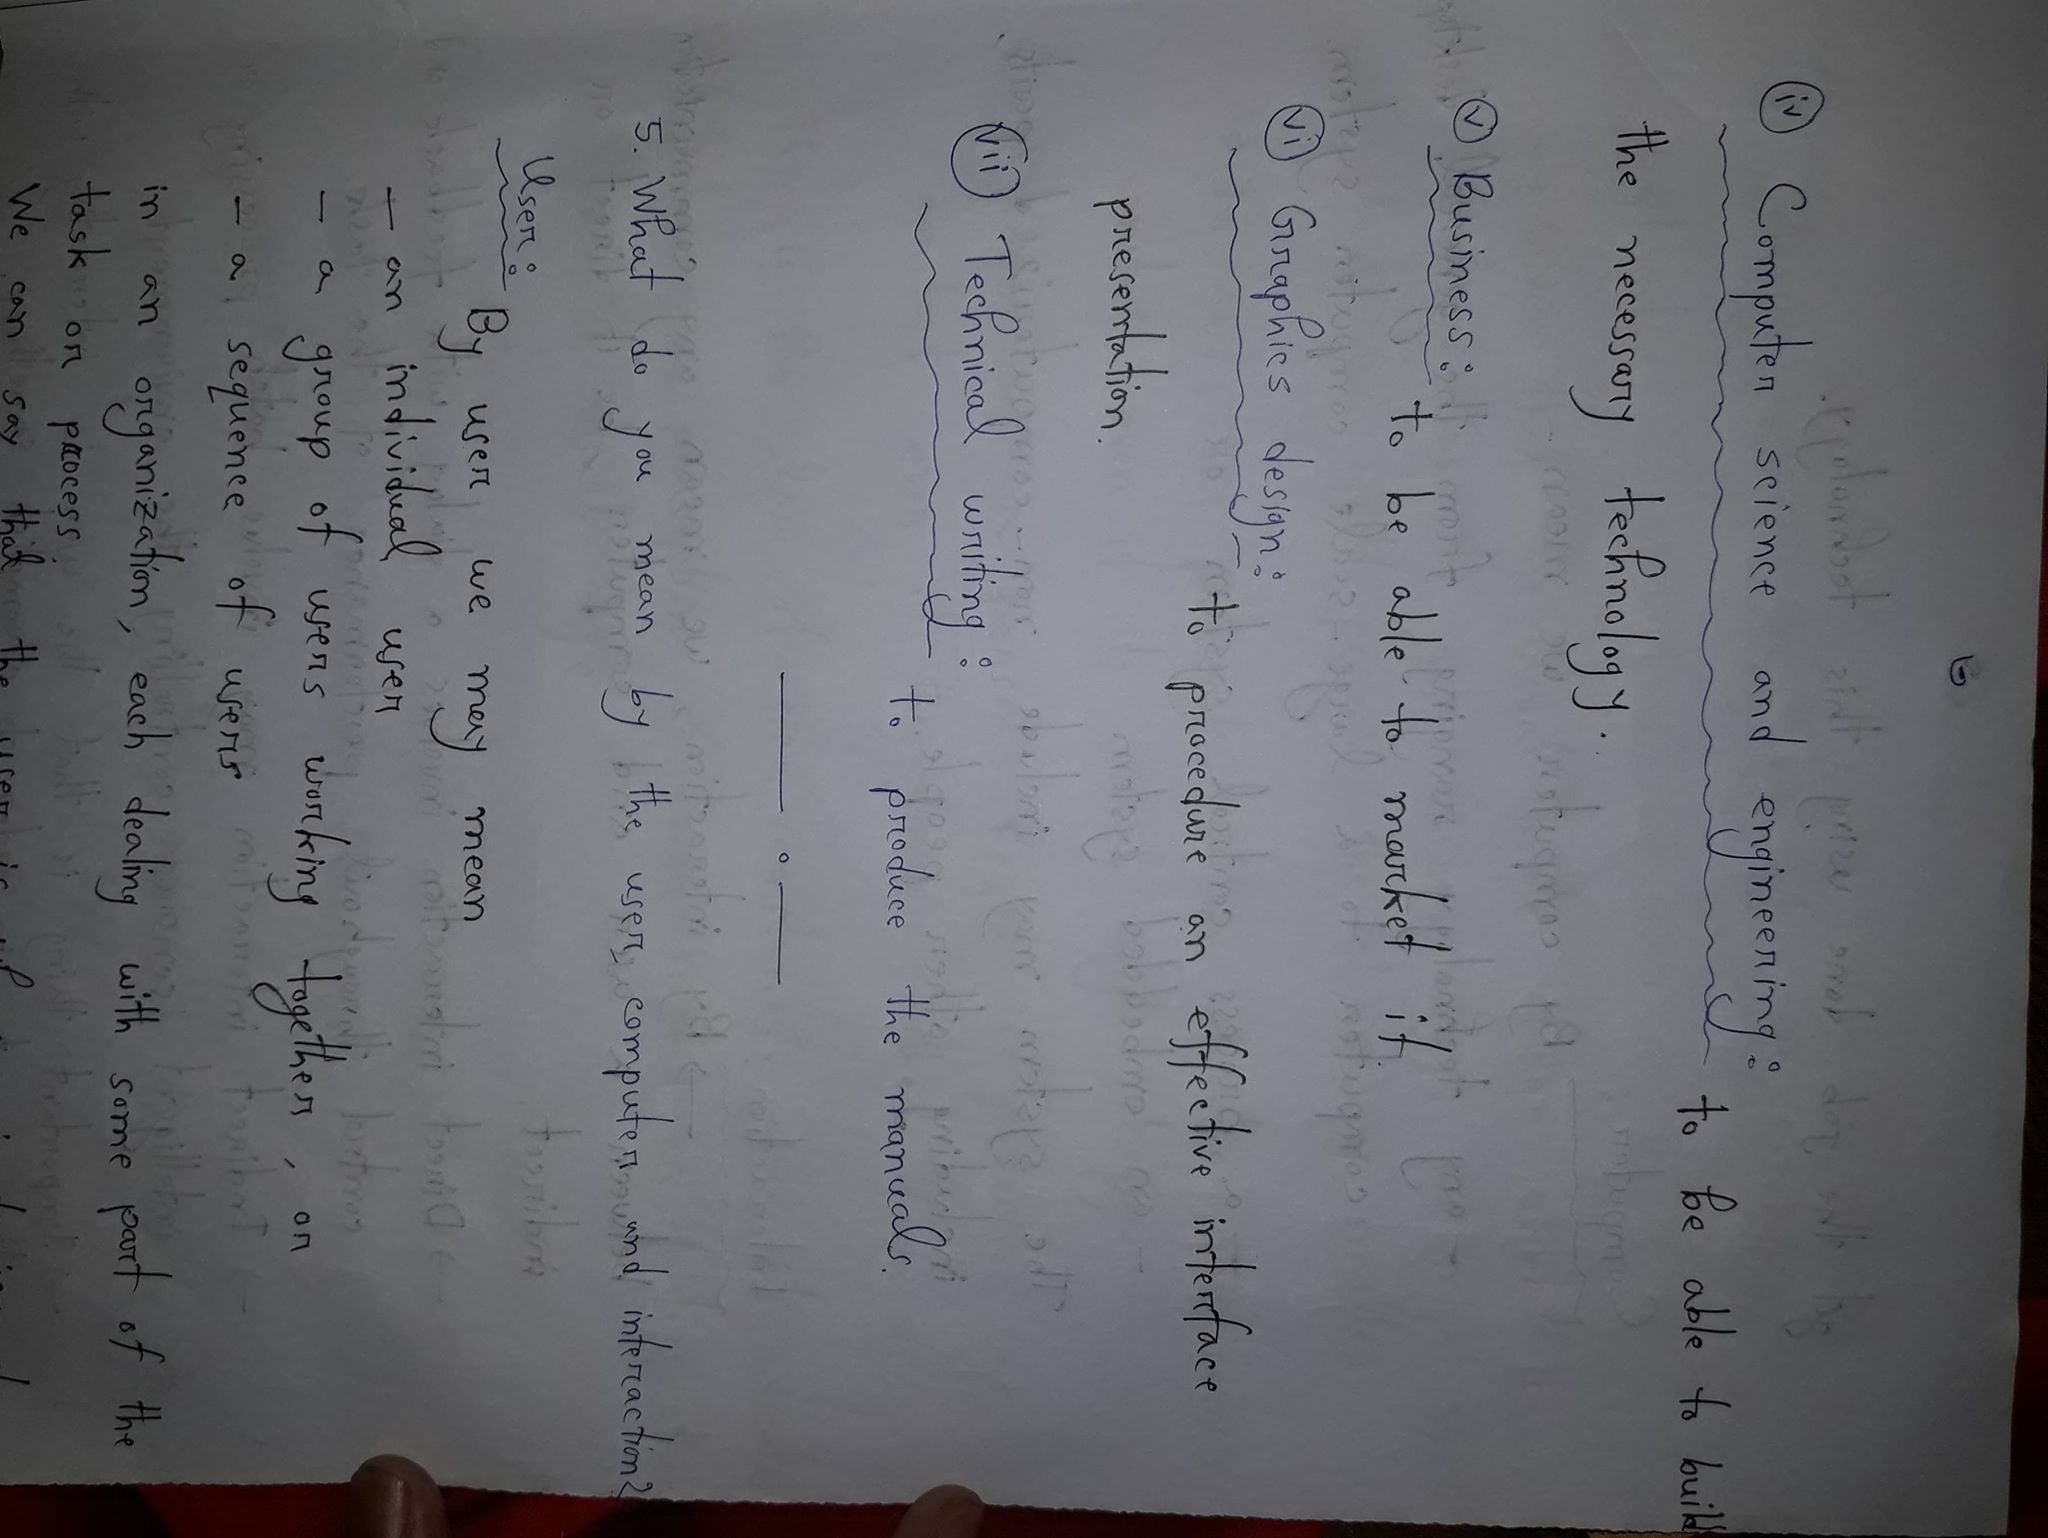 6
(iv) Computer science and engineering: to be able to build
the necessary technology.
(v) Business: to be able to market it
(vi) Graphics design: to procedure an effective interface
presentation.
(vii) Technical writing: to produce the manuals.
5. What do you mean by the user, computer and interaction?
User: By user we may mean
- an individual user
- a group of users working together, or
- a sequence of users
in an organization, each dealing with some part of the
task or process.
We can say that the user is